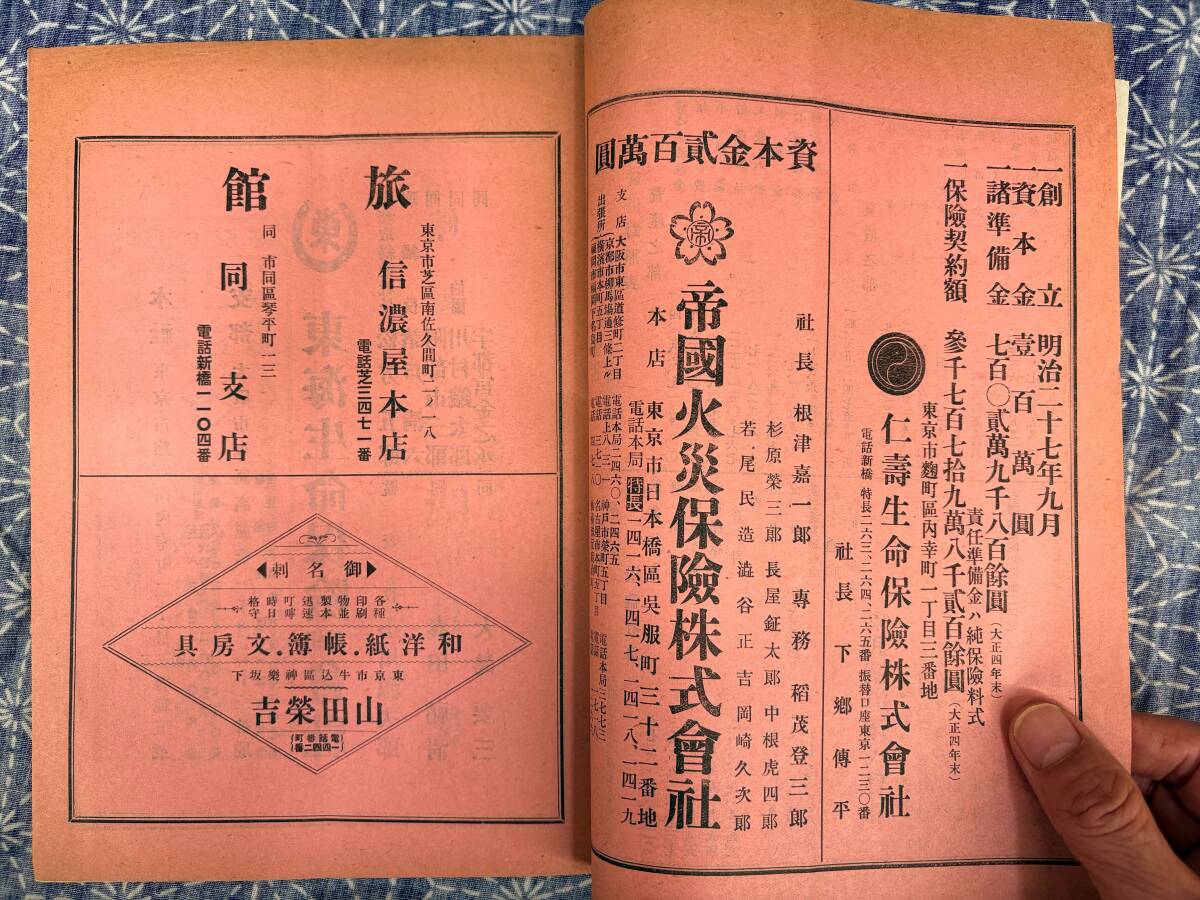 一創立 明治二十七年九月
一資本金 壹百萬圓
一諸準備金 七百〇貳萬九千八百餘圓(大正四年末)
責任準備金ハ純保險料式
一保險契約額 參千七百七拾九萬八千貳百餘圓(大正四年末)
東京市麴町區內幸町一丁目三番地
仁壽生命保險株式會社
電話新橋 特長二六三、二六四、二六五番 振替口座東京一二三〇番
社長 下鄕傳平
資本金貳百萬圓
社長 根津嘉一郞 專務 稻茂登三郞
杉原榮三郞 長屋鉦太郞 中根虎四郞
若尾民造 澁谷正吉 岡崎久次郞
帝
帝國火災保險株式會社
本店 東京市日本橋區吳服町三十二番地
電話本局特長一四一六、一四一七、一四一八、一四一九
支店 大阪市東區道修町二丁目 電話本局二四六〇、二四六五
出張所
京都市柳馬場通三條上ル
橫濱市本町五丁目
神戶市榮町五丁目
旅館
東京市芝區南佐久間町二ノ一八
信濃屋本店
電話芝三四七一番
同 市同區琴平町一三
同支店
電話新橋一一〇四番
御名刺
各種印刷物並製本迅速叮嚀時日格守
和洋紙.帳簿.文房具
東京市牛込區神樂坂下
山田榮吉
電話番町一四四二番